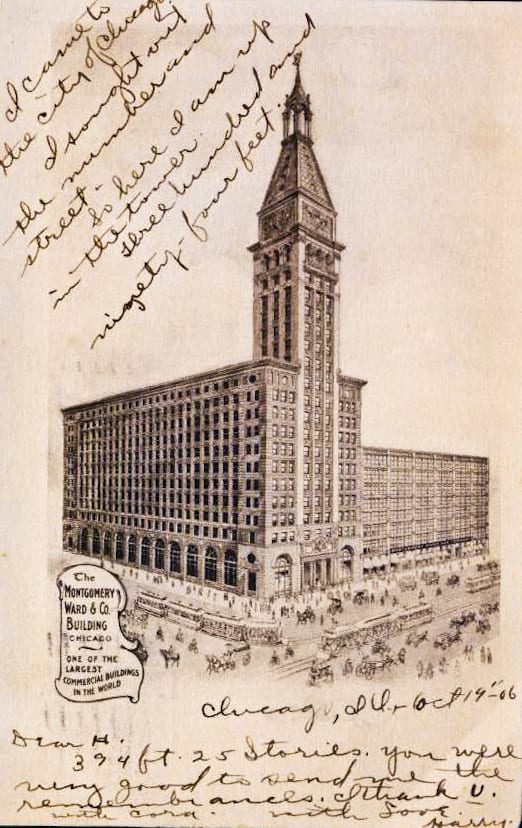 I came to
the city of Chicago
I sought out
the number and
street.
So here I am up
in the tower.
three hundred and
ninety-four feet.
The
MONTGOMERY
WARD & CO.
BUILDING
CHICAGO
ONE OF THE
LARGEST
COMMERCIAL BUILDINGS
IN THE WORLD
Chicago, Ill. Oct 19th-06
Dear H.
394 ft. 25 Stories. You were
very good to send me the
remembrances. I thank U.
with Love
Harry.